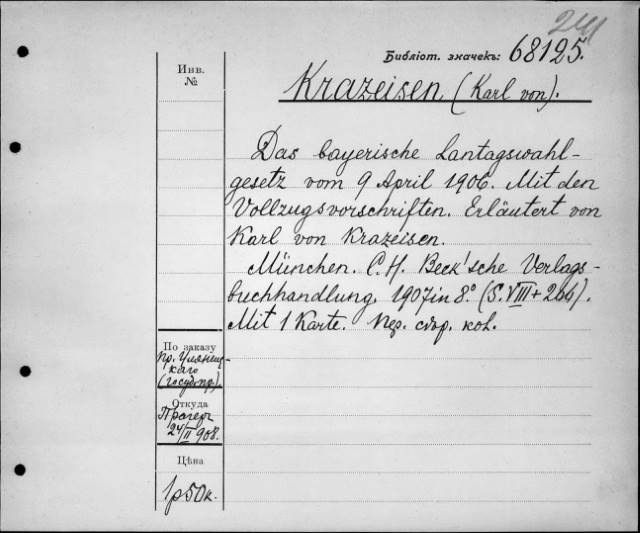 241
Библіот. значекъ: 68125.
Инв.
№
Krazeisen, (Karl von).
Das bayerische Lantagswahl-
gesetz vom 9 April 1906. Mit den
Vollzugsvorschriften. Erläutert von
Karl von Krazeisen.
München. C. H. Beck'sche Verlags-
buchhandlung. 1907 in 8.° (S. VIII + 266).
Mit 1 Karte. Пер. сѣр. кол.
По заказу
пр. Улянец-
каго
(госуд. пр.).
Откуда
Прагеръ
24/II 908.
Цѣна
1р 50к.